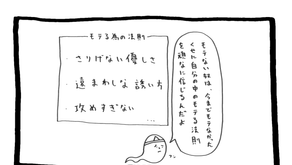 モテる為の法則
・さりげない優しさ
・遠まわしな誘い方
・攻めすぎない
モテない奴は、今までモテなかった
くせに自分の中のモテる法則
を頑なに信じるんだよ